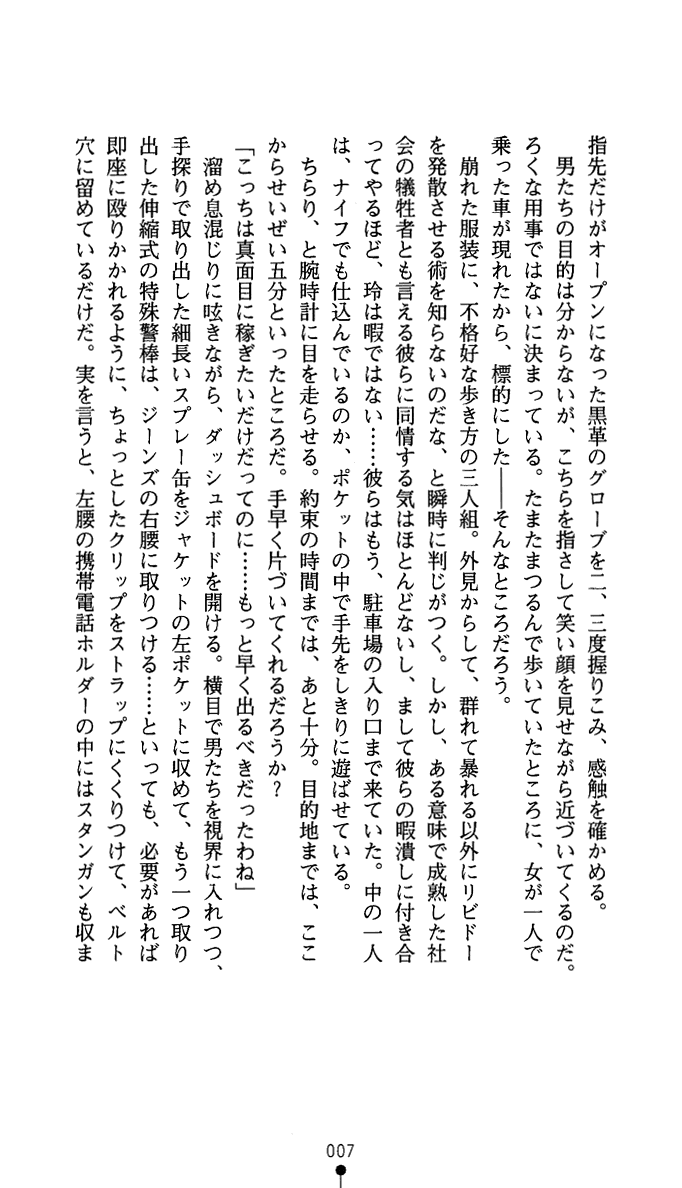 指先だけがオープンになった黒革のグローブを二、三度握りこみ、感触を確かめる。
　男たちの目的は分からないが、こちらを指さして笑い顔を見せながら近づいてくるのだ。
ろくな用事ではないに決まっている。たまたまつるんで歩いていたところに、女が一人で
乗った車が現れたから、標的にした――そんなところだろう。
　崩れた服装に、不格好な歩き方の三人組。外見からして、群れて暴れる以外にリビドー
を発散させる術を知らないのだな、と瞬時に判じがつく。しかし、ある意味で成熟した社
会の犠牲者とも言える彼らに同情する気はほとんどないし、まして彼らの暇潰しに付き合
ってやるほど、玲は暇ではない……彼らはもう、駐車場の入り口まで来ていた。中の一人
は、ナイフでも仕込んでいるのか、ポケットの中で手先をしきりに遊ばせている。
　ちらり、と腕時計に目を走らせる。約束の時間までは、あと十分。目的地までは、ここ
からせいぜい五分といったところだ。手早く片づいてくれるだろうか？
「こっちは真面目に稼ぎたいだけだってのに……もっと早く出るべきだったわね」
　溜め息混じりに呟きながら、ダッシュボードを開ける。横目で男たちを視界に入れつつ、
手探りで取り出した細長いスプレー缶をジャケットの左ポケットに収めて、もう一つ取り
出した伸縮式の特殊警棒は、ジーンズの右腰に取りつける……といっても、必要があれば
即座に殴りかかれるように、ちょっとしたクリップをストラップにくくりつけて、ベルト
穴に留めているだけだ。実を言うと、左腰の携帯電話ホルダーの中にはスタンガンも収ま
007